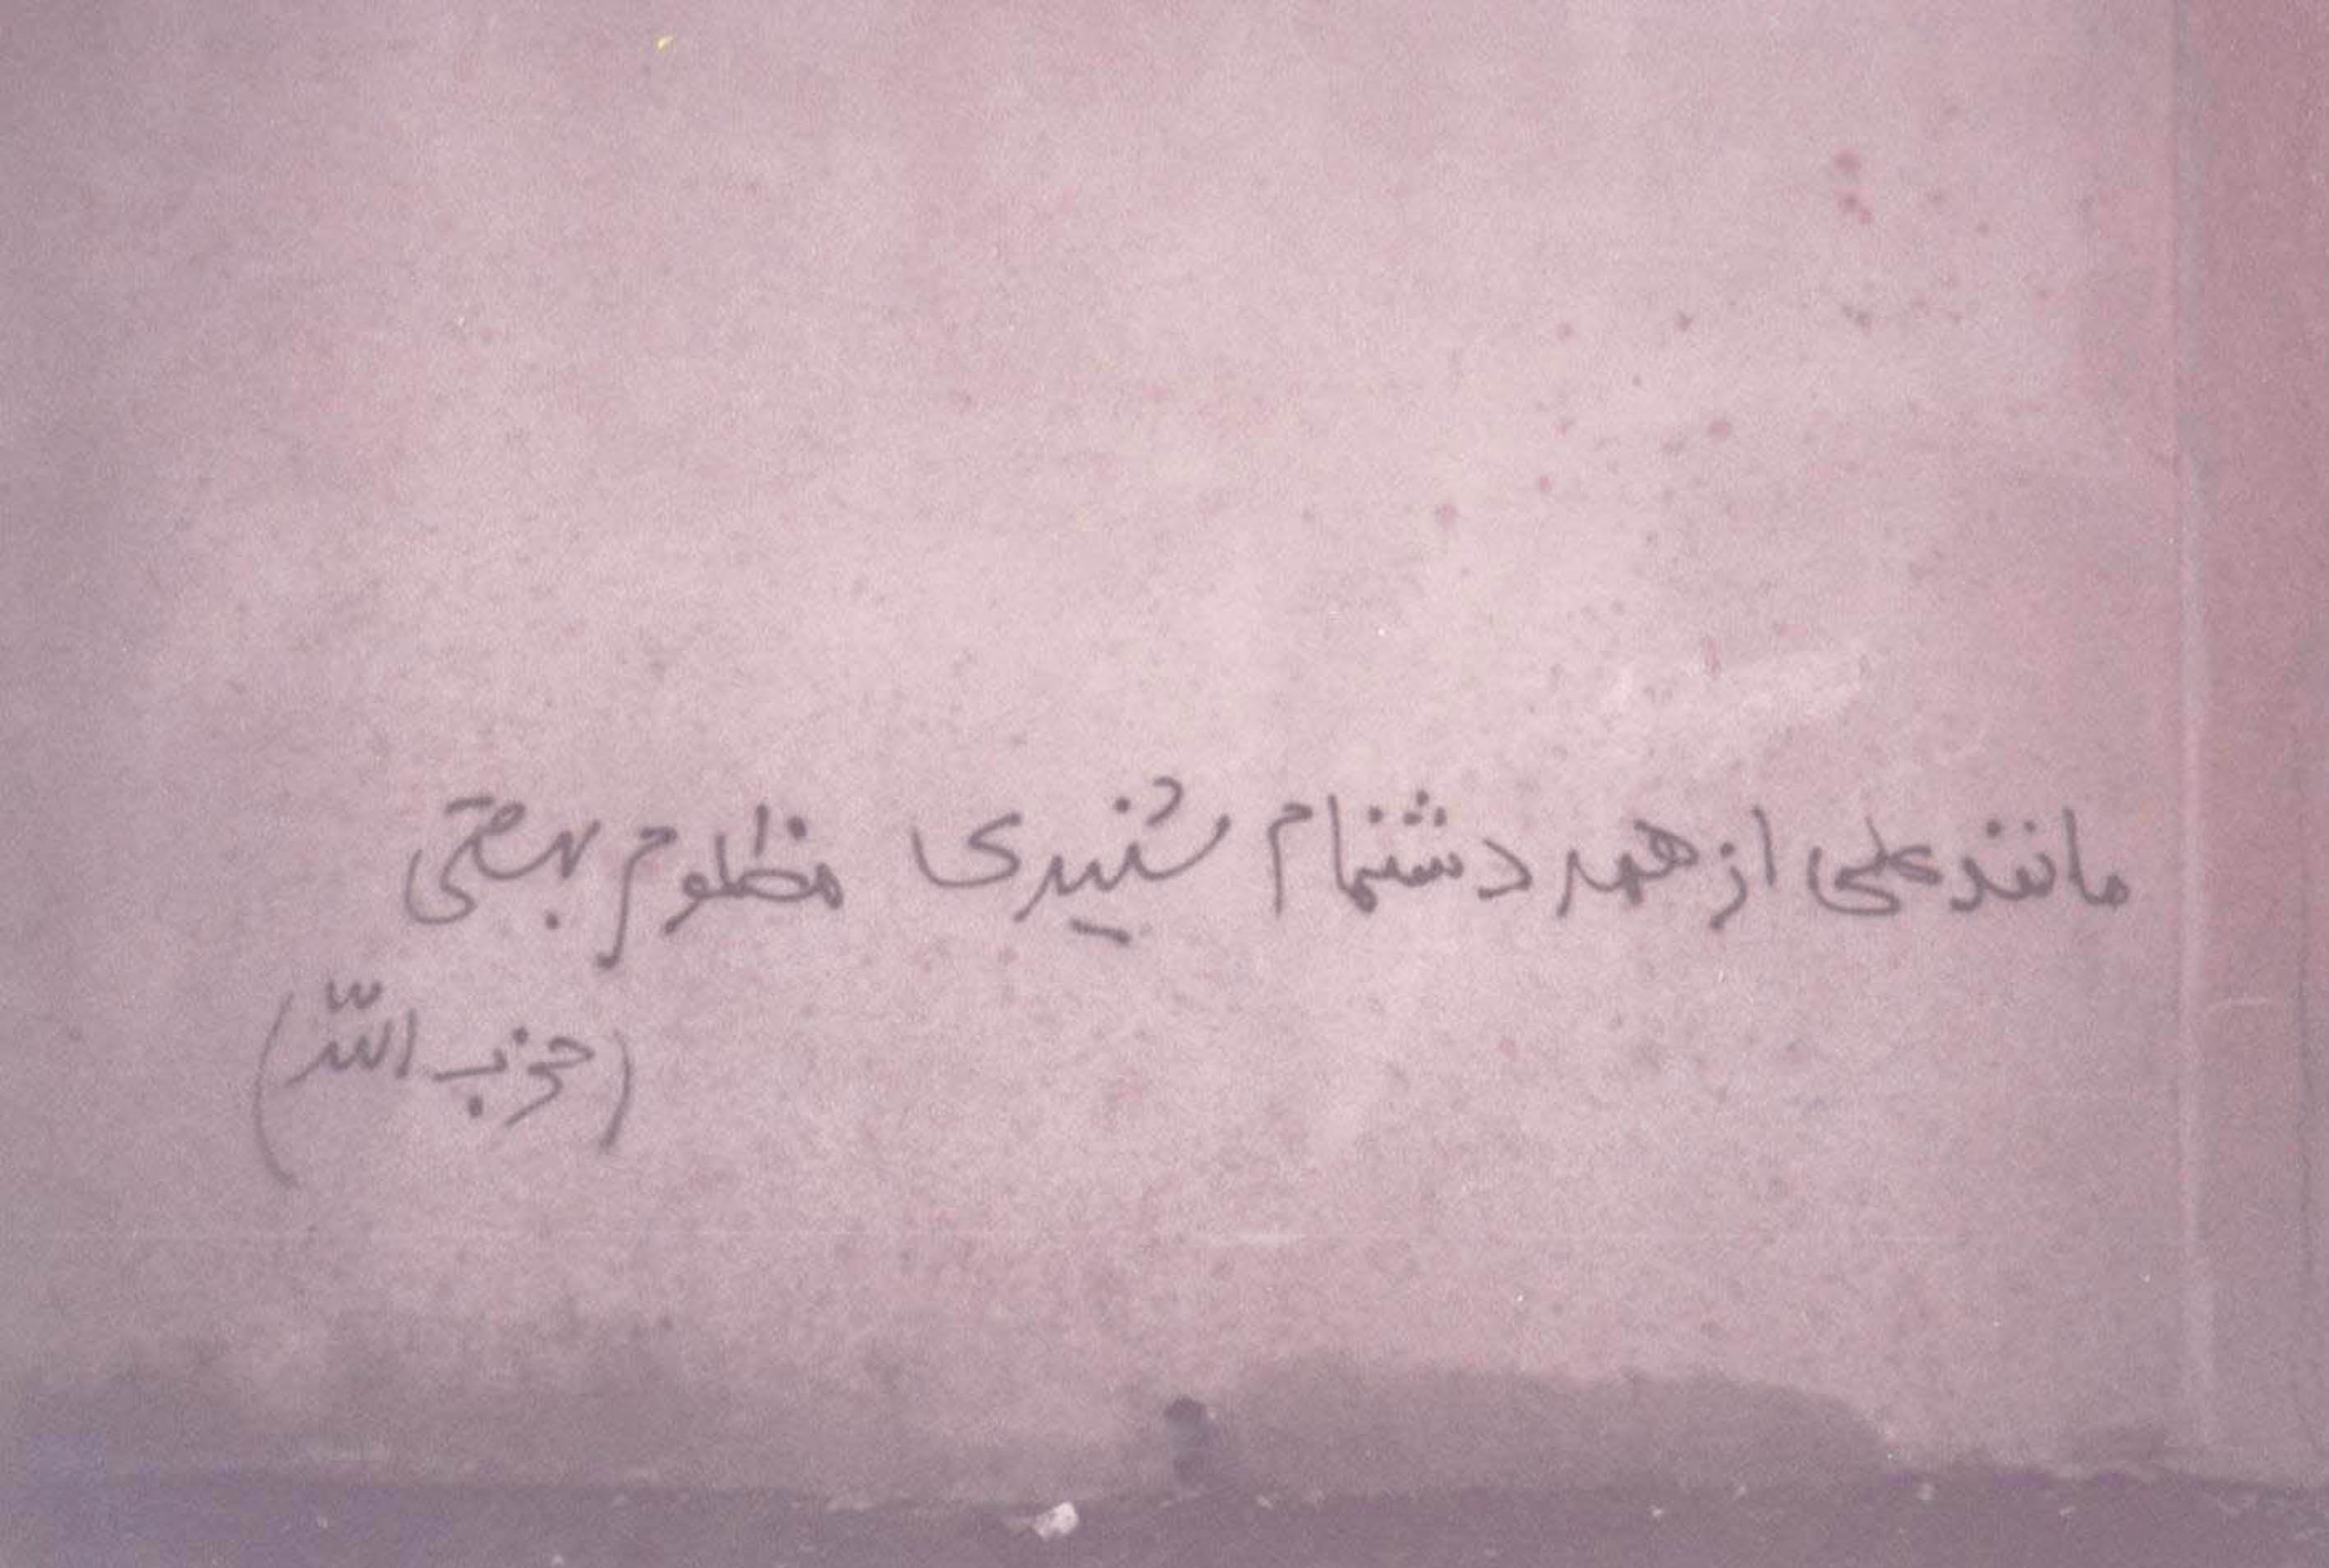 مانند علی از همه دشنام شنیدی مظلوم بهشتی
(حزب الله)